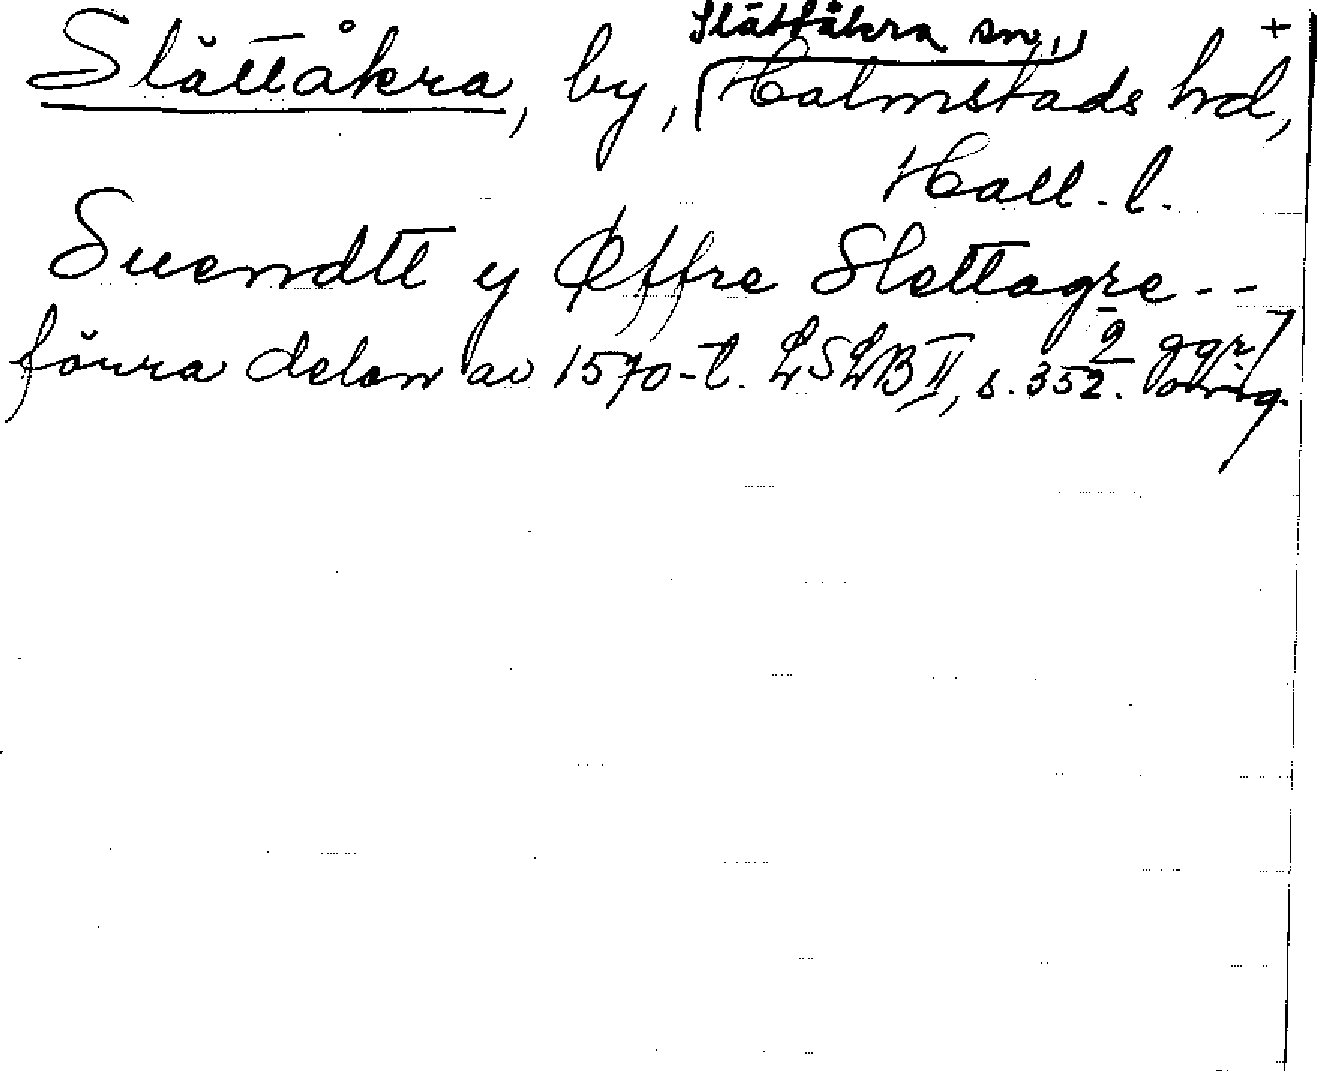 Slättåkra sn., +
Slättåkra, by, Halmstads hd,
Hall. l.
Suendtt y Øffre Slettagre --
förra delen av 1570-t. LSLB II, s. 352. 2 ggr/
orig.